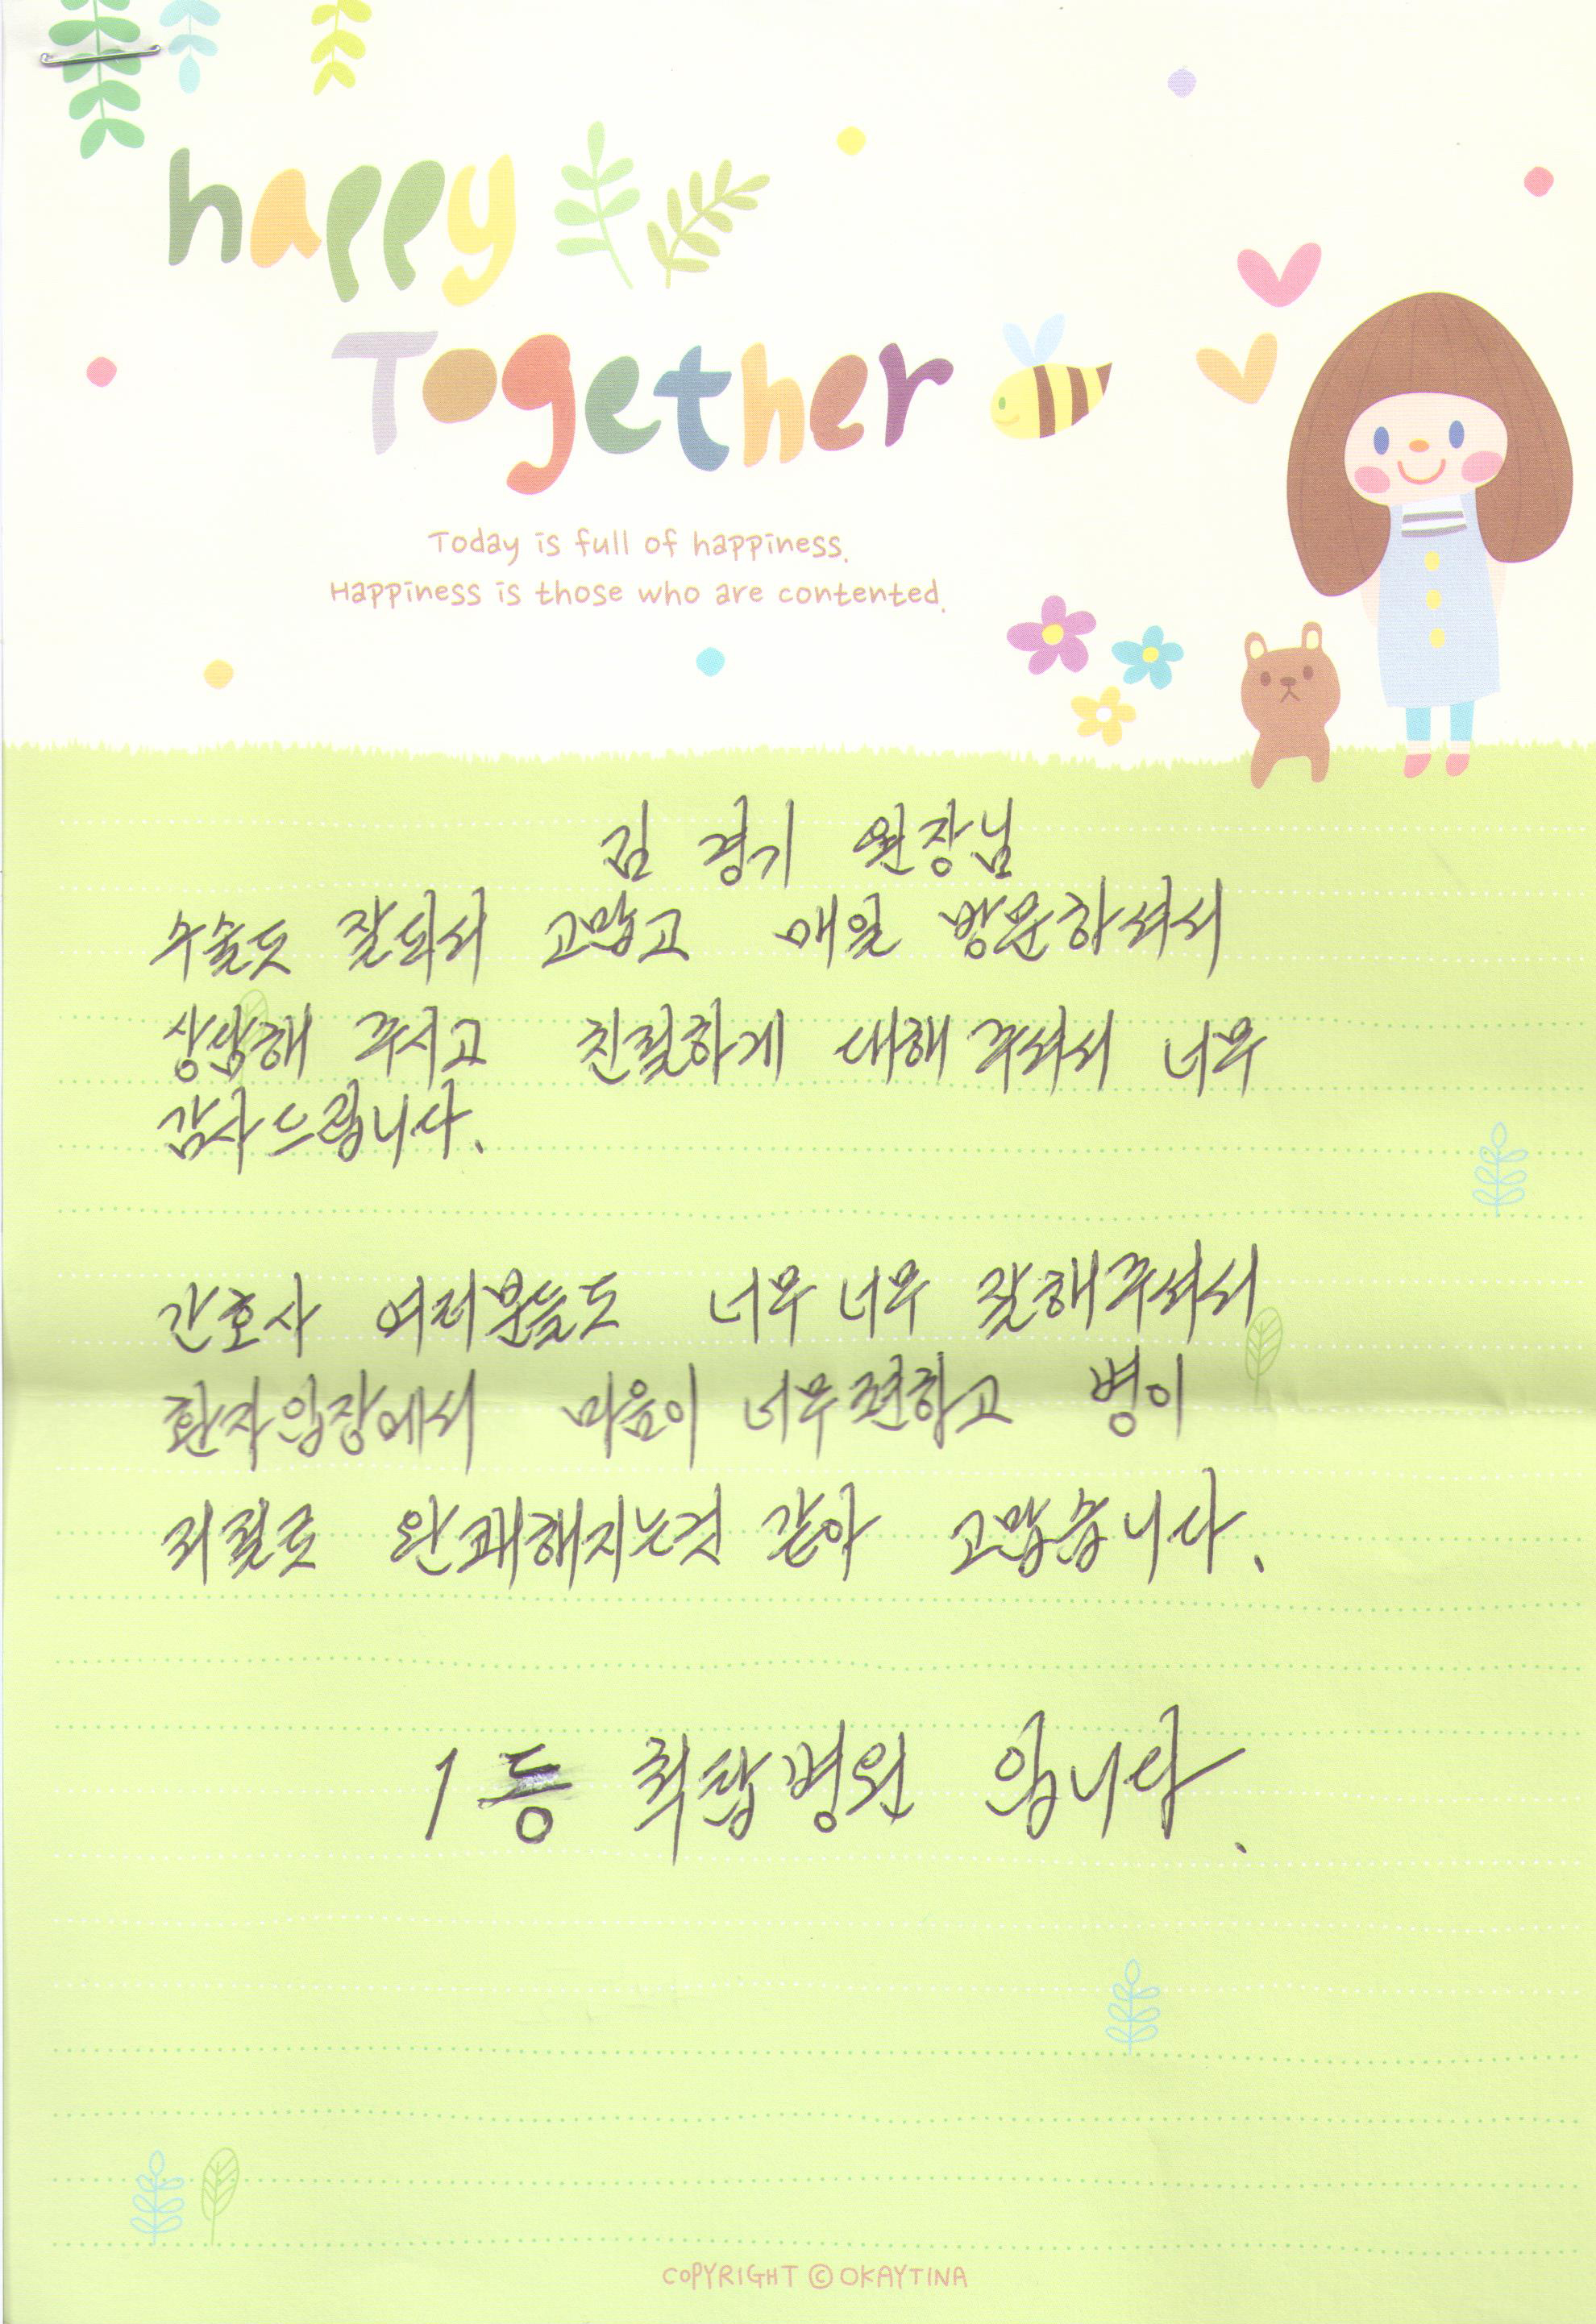 happy
Together
Today is full of happiness.
Happiness is those who are contented.
김 경기 원장님
수술도 잘되서 고맙고 매일 방문하셔서
상담해 주시고 친절하게 대해 주셔서 너무
감사드립니다.
간호사 여러분들도 너무 너무 잘해주셔서
환자입장에서 마음이 너무편하고 병이
저절로 완쾌해지는것 같아 고맙습니다.
1등 척탑병원 입니다.
COPYRIGHT © OKAYTINA